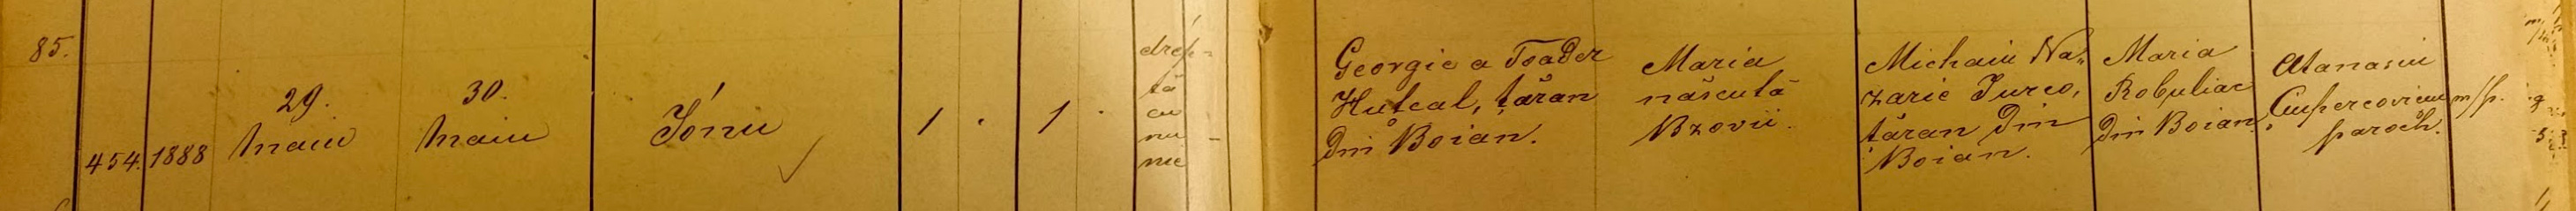 85.
454. 1888
29.
Maiu
30.
Maiu
Iónu
1 . 1 .
drep-
tă
cu
nu-
nie
Georgie a Toader
Hutcal, țăran
din Boian.
Maria
născută
Bzovii.
Michaiu Na„
zarie Iurco,
țăran din
Boian.
Maria
Robuliac
din Boian.
Atanasiu
Ciupercoviciu m/p.
paroch.